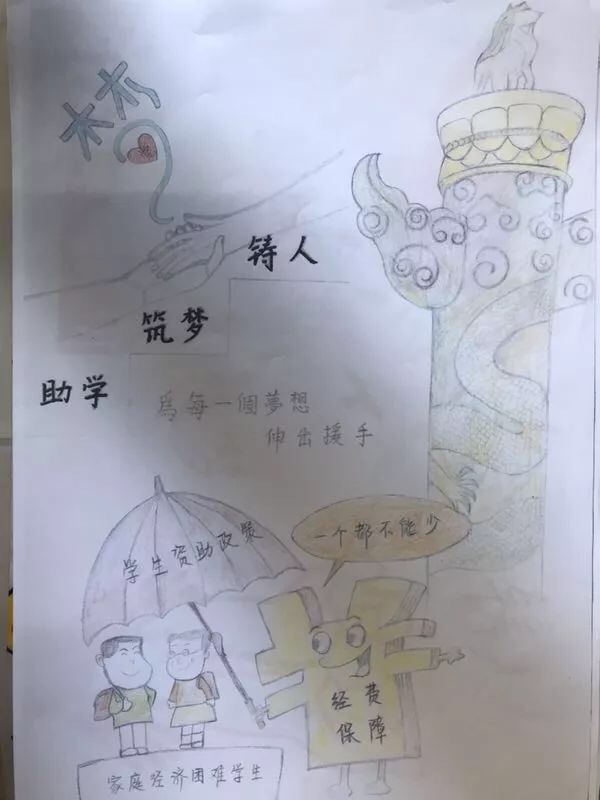 梦
铸人
筑梦
助学
爲每一個夢想
伸出援手
学生资助政策
一个都不能少
经费
保障
家庭经济困难学生